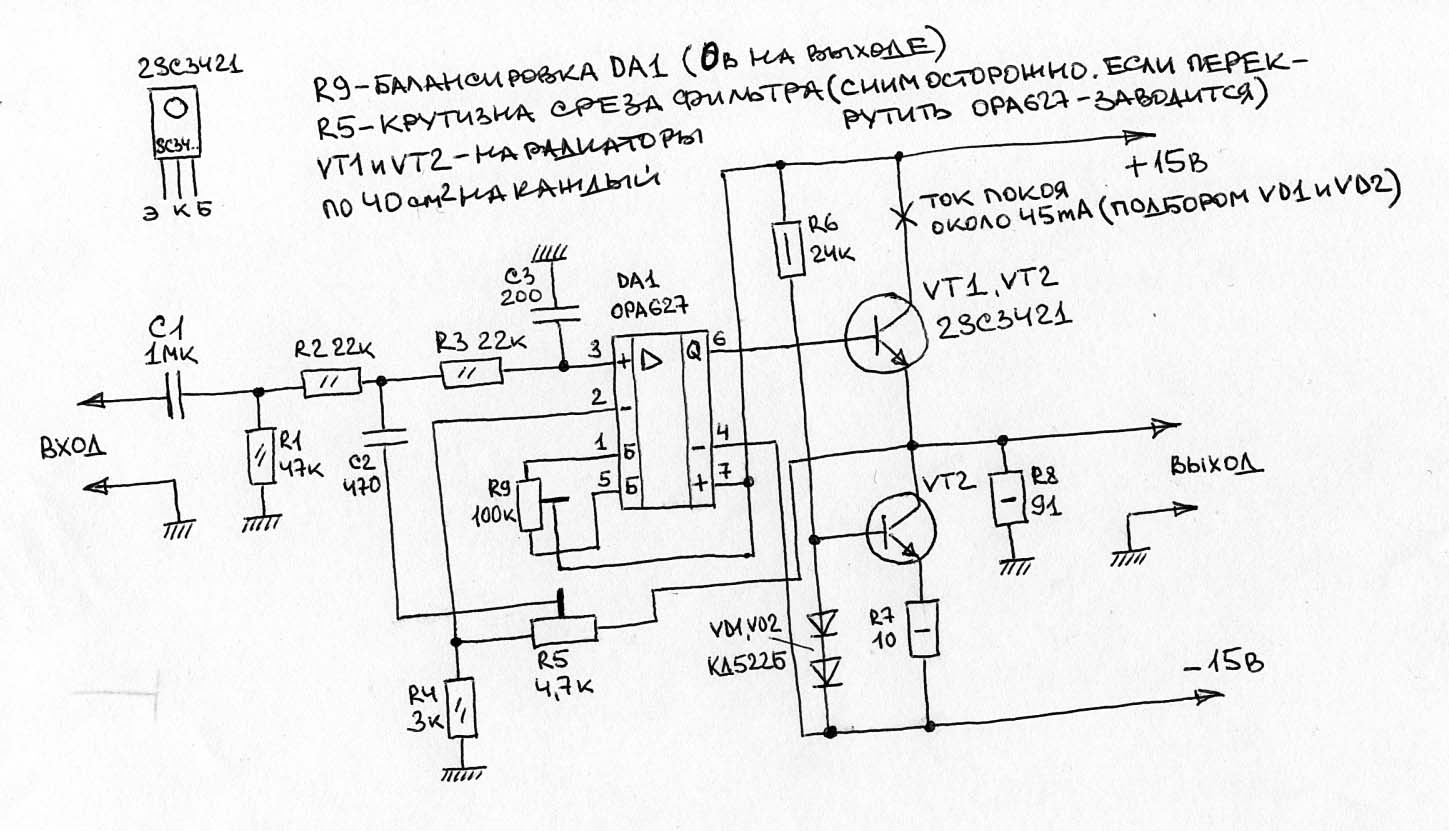 2SC3421
SC34..
Э К Б
R9-БАЛАНСИРОВКА DA1 (0В НА ВЫХОДЕ)
R5-КРУТИЗНА СРЕЗА ФИЛЬТРА (СНИМ ОСТОРОЖНО. ЕС�ЛИ ПЕРЕК-
РУТИТЬ OPA627-ЗАВОДИТСЯ)
VT1 и VT2-НА РАДИАТОРЫ
ПО 40 см² НА КАЖДЫЙ
+15В
ТОК ПОКОЯ
ОКОЛО 45mA (ПОДБОРОМ VD1 и VD2)
R6
24К
C3
200
DA1
OPA627
VT1, VT2
2SC3421
C1
1МК
R2 22К
R3 22К
3
+
Q
6
2
-
ВХОД
R1
47К
C2
470
1
Б
-
4
5
Б
+
7
R9
100К
VT2
R8
91
ВЫХОД
R5
4,7К
VD1, VD2
КД522Б
R7
10
R4
3К
-15В